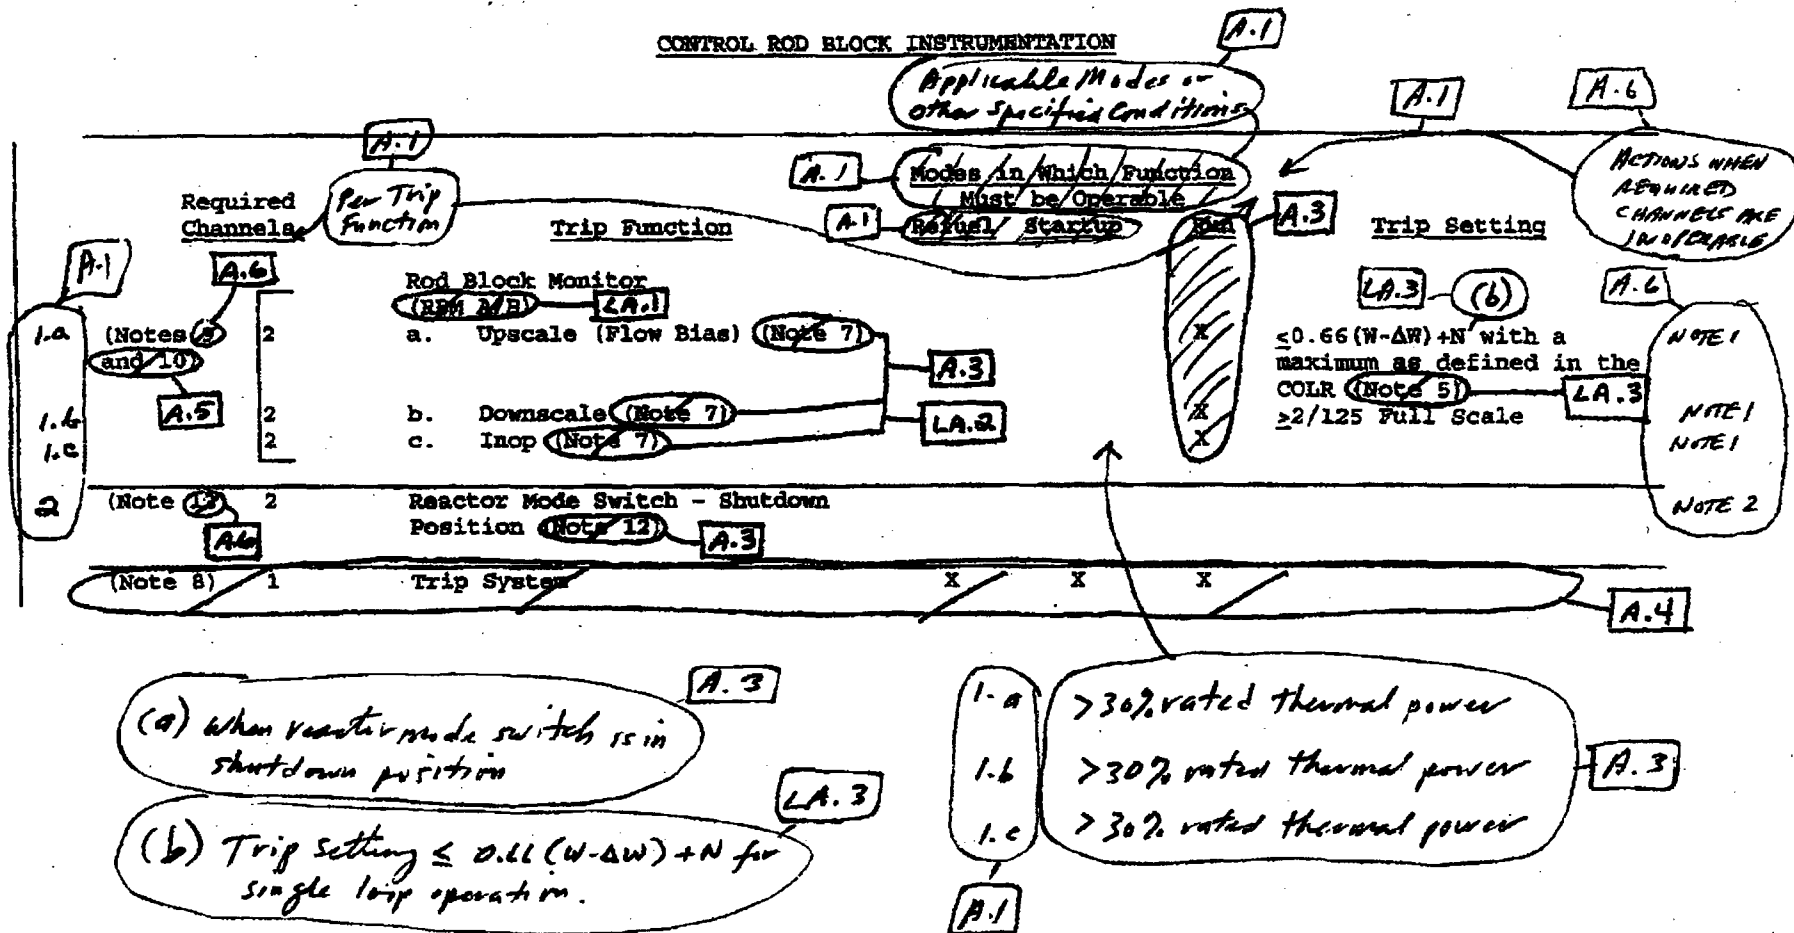 CONTROL ROD BLOCK INSTRUMENTATION
A.1
Applicable Modes or
other specified conditions
A.1
A.6
A.1
A.1
Modes in Which Function
Must be Operable
ACTIONS WHEN
REQUIRED
CHANNELS ARE
INOPERABLE
Required
Channels
Per Trip
Function
Trip Function
A.1
Refuel Startup Run
A.3
Trip Setting
A.1
A.6
Rod Block Monitor
(RBM A/B)
LA.1
LA.3
(b)
A.6
1.a
(Notes 9
and 10)
2
a. Upscale (Flow Bias) (Note 7)
X
≤0.66(W-ΔW)+N with a
maximum as defined in the
COLR (Note 5)
NOTE 1
A.3
A.5
LA.3
1.b
2
b. Downscale (Note 7)
LA.2
X
≥2/125 Full Scale
NOTE 1
1.c
2
c. Inop (Note 7)
X
NOTE 1
2
(Note
2
Reactor Mode Switch - Shutdown
Position (Note 12)
NOTE 2
A.6
A.3
(Note 8) 1 Trip System X X X
A.4
A.3
(a) when reactor mode switch is in
shutdown position
LA.3
(b) Trip setting ≤ 0.66 (W-ΔW) + N for
single loop operation.
1.a >30% rated thermal power
1.b >30% rated thermal power
A.3
1.c >30% rated thermal power
A.1